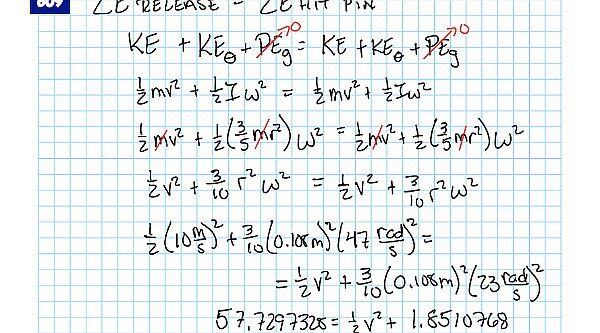 ΣE RELEASE = ΣE HIT PIN
KE + KE_θ + PE_g→0 = KE + KE_θ + PE_g→0
½mv² + ½Iω² = ½mv² + ½Iω²
½mv² + ½(3/5 mr²)ω² = ½mv² + ½(3/5 mr²)ω²
½v² + 3/10 r²ω² = ½v² + 3/10 r²ω²
½(10 m/s)² + 3/10(0.108m)²(47 rad/s)² =
= ½v² + 3/10(0.108m)²(23 rad/s)²
57.7297328 = ½v² + 1.8510768